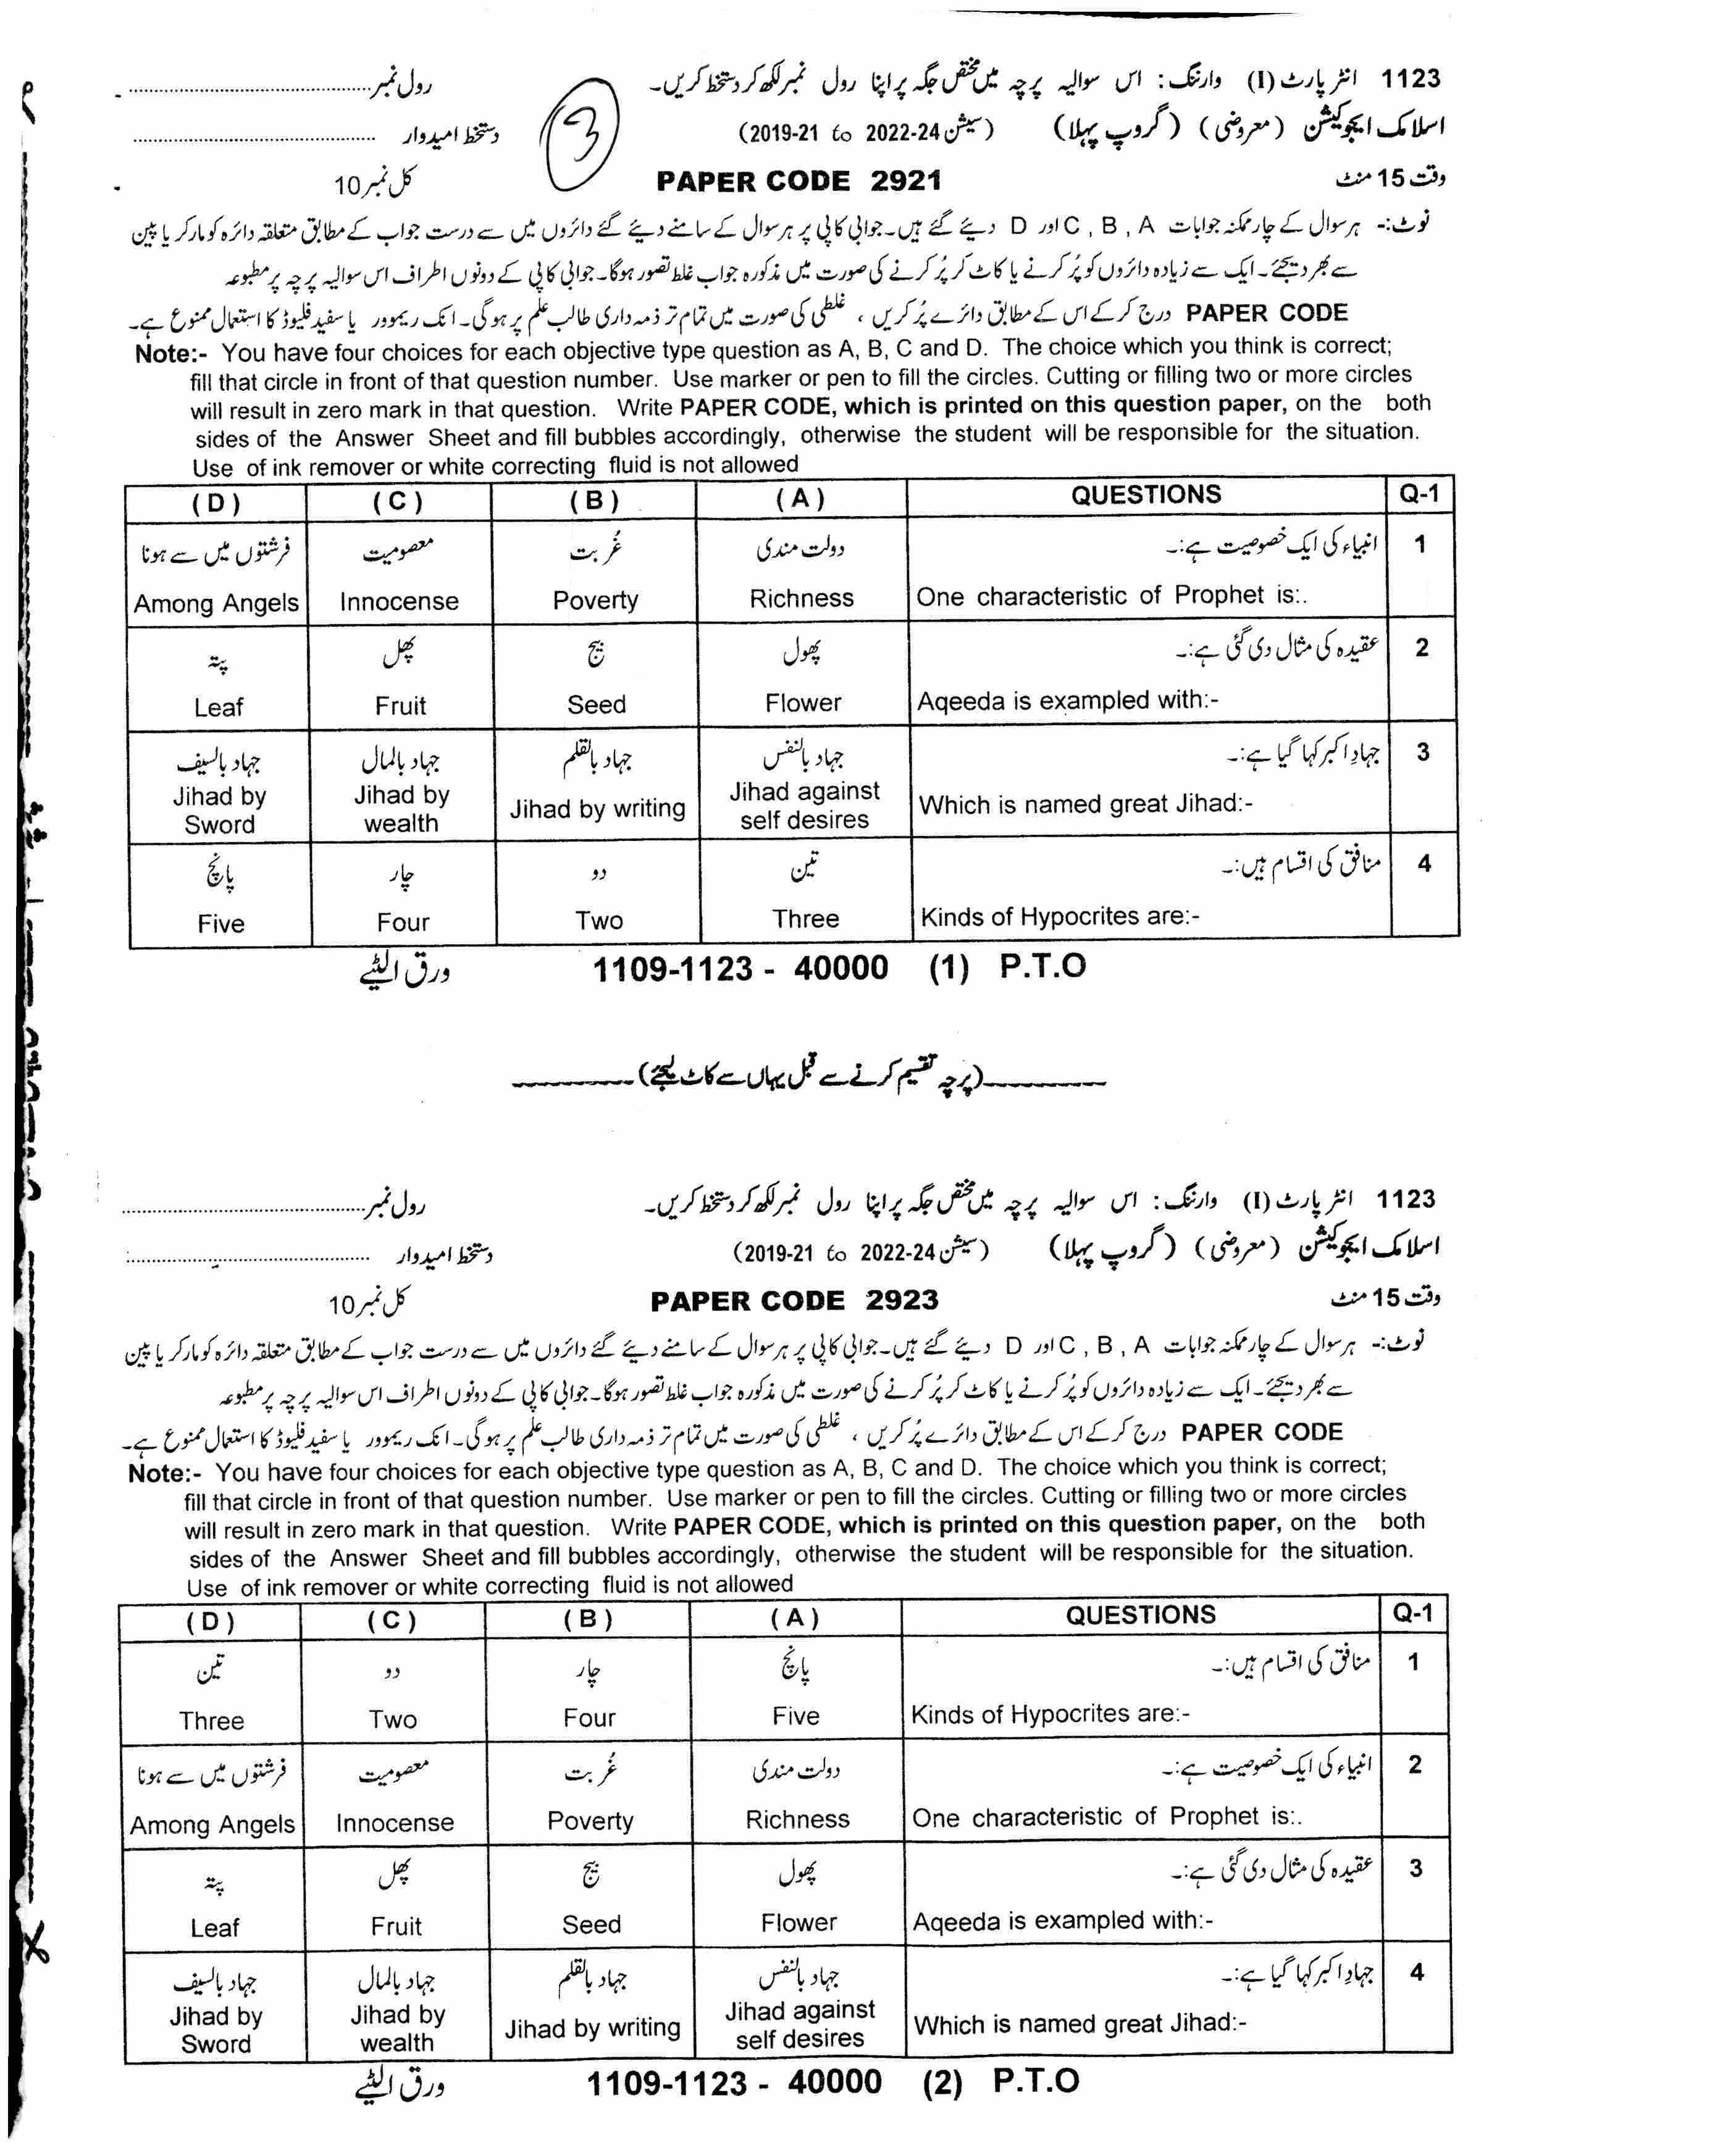 1123 انٹر پارٹ (I) وارننگ : اس سوالیہ پرچہ میں مختص جگہ پر اپنا رول نمبر لکھ کر دستخط کریں۔ رول نمبر
اسلامک ایجوکیشن (معروضی) (گروپ پہلا) (سیشن 2022-24 to 2019-21) دستخط امیدوار
3
وقت 15 منٹ PAPER CODE 2921 کل نمبر 10
نوٹ:- ہر سوال کے چار ممکنہ جوابات A , B , C اور D دیئے گئے ہیں۔ جوابی کاپی پر ہر سوال کے سامنے دیئے گئے دائروں میں سے درست جواب کے مطابق متعلقہ دائرہ کو مارکر یا پین
سے بھر دیجئے۔ ایک سے زیادہ دائروں کو پُر کرنے یا کاٹ کر پُر کرنے کی صورت میں مذکورہ جواب غلط تصور ہوگا۔ جوابی کاپی کے دونوں اطراف اس سوالیہ پرچہ پر مطبوعہ
PAPER CODE درج کر کے اس کے مطابق دائرے پُر کریں ، غلطی کی صورت میں تمام تر ذمہ داری طالب علم پر ہوگی۔ انک ریموور یا سفید فلیوڈ کا استعمال ممنوع ہے۔
Note:- You have four choices for each objective type question as A, B, C and D. The choice which you think is correct;
fill that circle in front of that question number. Use marker or pen to fill the circles. Cutting or filling two or more circles
will result in zero mark in that question. Write PAPER CODE, which is printed on this question paper, on the both
sides of the Answer Sheet and fill bubbles accordingly, otherwise the student will be responsible for the situation.
Use of ink remover or white correcting fluid is not allowed
(D) (C) (B) (A) QUESTIONS Q-1
1 انبیاء کی ایک خصوصیت ہے:۔ دولت مندی غُربت معصومیت فرشتوں میں سے ہونا
Among Angels Innocense Poverty Richness One characteristic of Prophet is:.
2 عقیدہ کی مثال دی گئی ہے:۔ پھول بیج پھل پتہ
Leaf Fruit Seed Flower Aqeeda is exampled with:-
3 جہادِ اکبر کہا گیا ہے:۔ جہاد بالنفس جہاد بالقلم جہاد بالمال جہاد بالسیف
Jihad by Sword Jihad by wealth Jihad by writing Jihad against self desires Which is named great Jihad:-
4 منافق کی اقسام ہیں:۔ تین دو چار پانچ
Five Four Two Three Kinds of Hypocrites are:-
ورق الٹیے 1109-1123 - 40000 (1) P.T.O
(پرچہ تقسیم کرنے سے قبل یہاں سے کاٹ لیجئے)
1123 انٹر پارٹ (I) وارننگ : اس سوالیہ پرچہ میں مختص جگہ پر اپنا رول نمبر لکھ کر دستخط کریں۔ رول نمبر
اسلامک ایجوکیشن (معروضی) (گروپ پہلا) (سیشن 2022-24 to 2019-21) دستخط امیدوار
وقت 15 منٹ PAPER CODE 2923 کل نمبر 10
نوٹ:- ہر سوال کے چار ممکنہ جوابات A , B , C اور D دیئے گئے ہیں۔ جوابی کاپی پر ہر سوال کے سامنے دیئے گئے دائروں میں سے درست جواب کے مطابق متعلقہ دائرہ کو مارکر یا پین
سے بھر دیجئے۔ ایک سے زیادہ دائروں کو پُر کرنے یا کاٹ کر پُر کرنے کی صورت میں مذکورہ جواب غلط تصور ہوگا۔ جوابی کاپی کے دونوں اطراف اس سوالیہ پرچہ پر مطبوعہ
PAPER CODE درج کر کے اس کے مطابق دائرے پُر کریں ، غلطی کی صورت میں تمام تر ذمہ داری طالب علم پر ہوگی۔ انک ریموور یا سفید فلیوڈ کا استعمال ممنوع ہے۔
Note:- You have four choices for each objective type question as A, B, C and D. The choice which you think is correct;
fill that circle in front of that question number. Use marker or pen to fill the circles. Cutting or filling two or more circles
will result in zero mark in that question. Write PAPER CODE, which is printed on this question paper, on the both
sides of the Answer Sheet and fill bubbles accordingly, otherwise the student will be responsible for the situation.
Use of ink remover or white correcting fluid is not allowed
(D) (C) (B) (A) QUESTIONS Q-1
1 منافق کی اقسام ہیں:۔ پانچ چار دو تین
Three Two Four Five Kinds of Hypocrites are:-
2 انبیاء کی ایک خصوصیت ہے:۔ دولت مندی غُربت معصومیت فرشتوں میں سے ہونا
Among Angels Innocense Poverty Richness One characteristic of Prophet is:.
3 عقیدہ کی مثال دی گئی ہے:۔ پھول بیج پھل پتہ
Leaf Fruit Seed Flower Aqeeda is exampled with:-
4 جہادِ اکبر کہا گیا ہے:۔ جہاد بالنفس جہاد بالقلم جہاد بالمال جہاد بالسیف
Jihad by Sword Jihad by wealth Jihad by writing Jihad against self desires Which is named great Jihad:-
ورق الٹیے 1109-1123 - 40000 (2) P.T.O